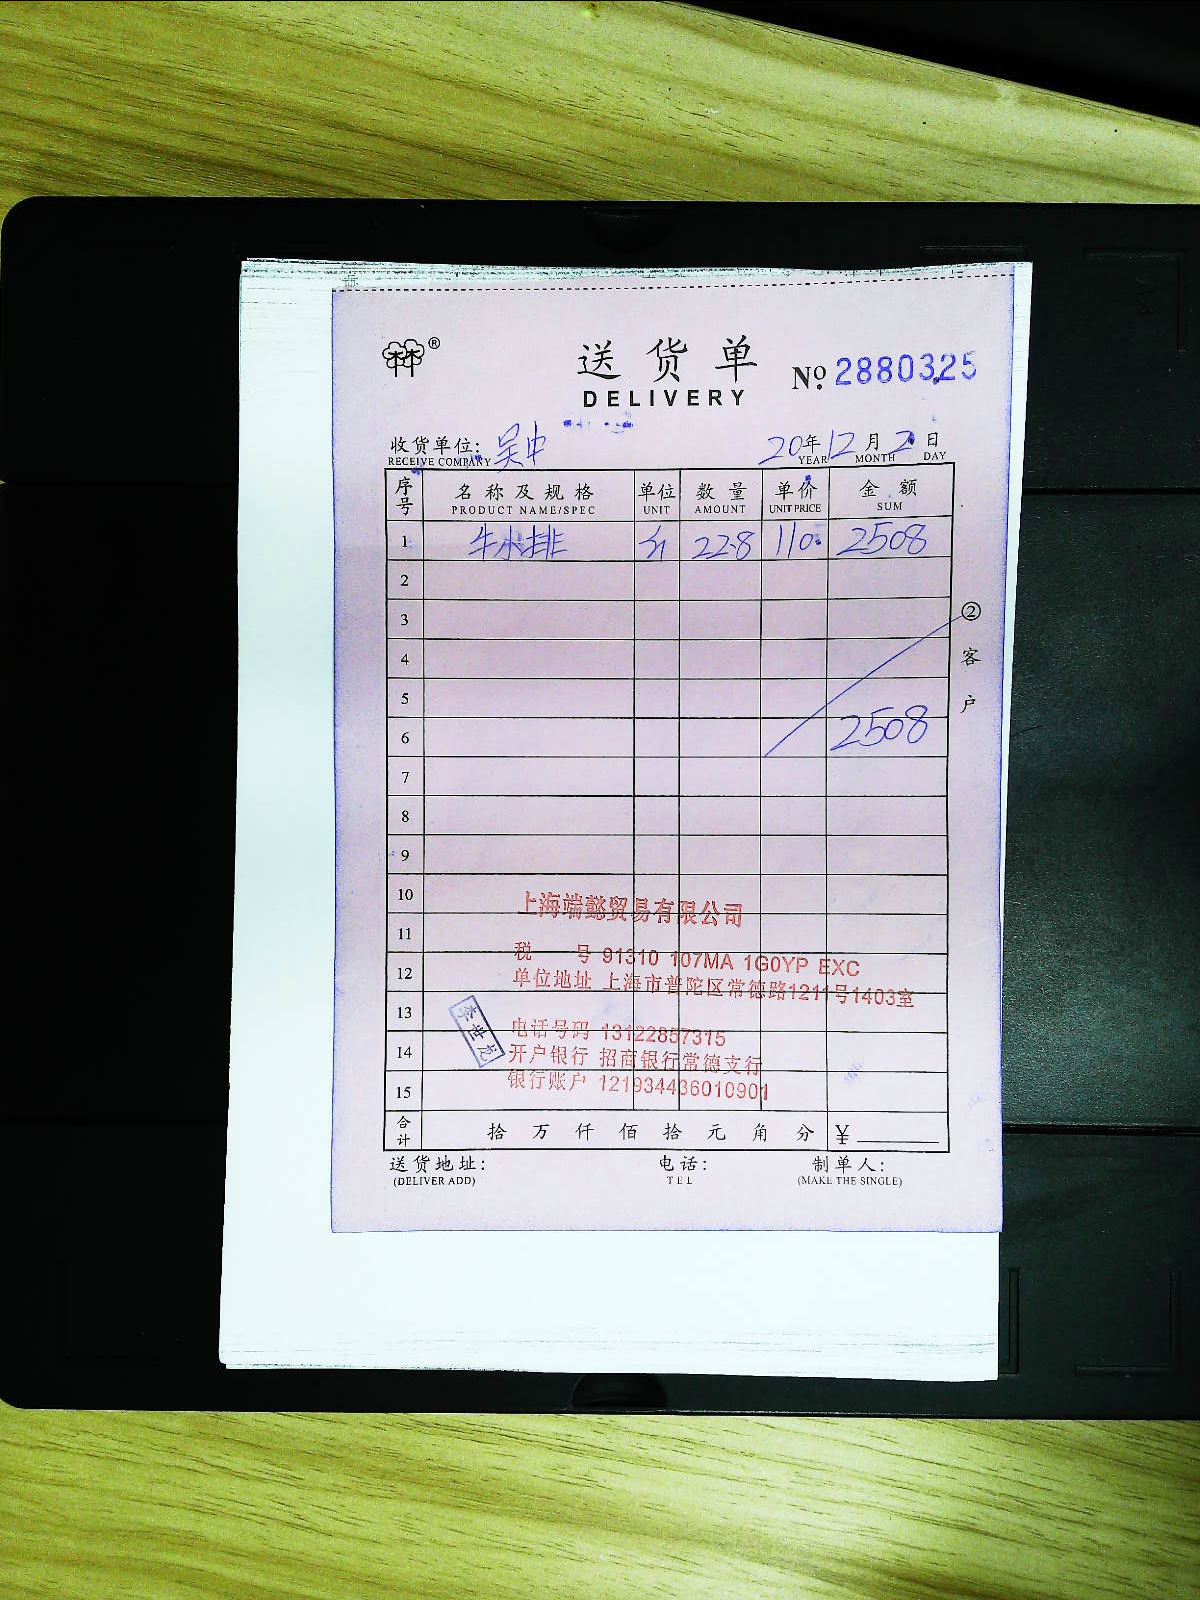 林林®
送货单
DELIVERY
No. 2880325
收货单位: 吴中
RECEIVE COMPANY
20年12月2日
YEAR MONTH DAY
序号 名称及规格 单位 数量 单价 金额
PRODUCT NAME/SPEC UNIT AMOUNT UNIT PRICE SUM
1 牛小排 斤 22.8 110. 2508
2
3
② 客户
4
5
6 2508
7
8
9
10
上海端懿贸易有限公司
11
税 号 91310 107MA 1G0YP EXC
12
单位地址 上海市普陀区常德路1211号1403室
13
李世龙
电话号码 13122857315
14
开户银行 招商银行常德支行
银行账户 121934436010901
15
合计 拾 万 仟 佰 拾 元 角 分 ¥
送货地址: 电话: 制单人:
(DELIVER ADD) TEL (MAKE THE SINGLE)